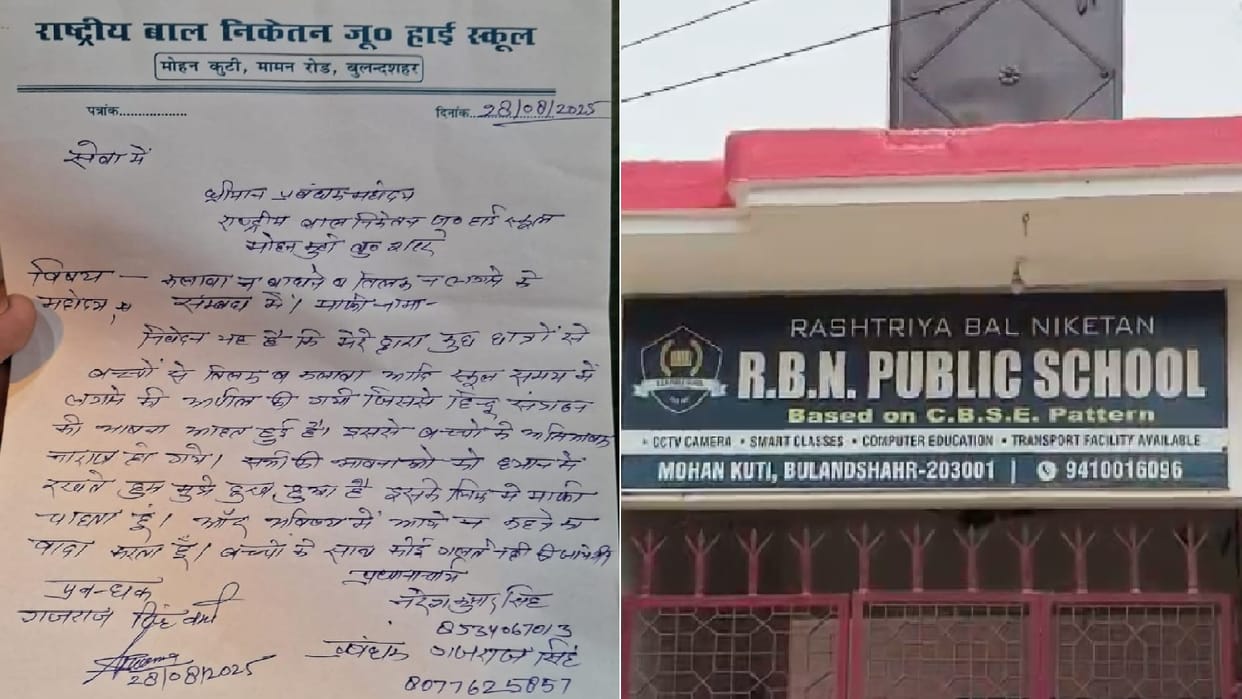 राष्ट्रीय बाल निकेतन जू० हाई स्कूल
मोहन कुटी, मामन रोड, बुलन्दशहर
पत्रांक.................
दिनांक...28/08/2025
सेवा में
श्रीमान प्रबंधक महोदय
राष्ट्रीय बाल निकेतन जू० हाई स्कूल
मोहन कुटी बु० शहर
विषय — कलावा न बाधने व तिलक न लगाने के
महोदय, सम्बंध में। माफी नामा-
निवेदन यह है कि मेरे द्वारा कुछ छात्रों से
बच्चों से तिलक व कलावा आदि स्कूल समय में
लगाने की अपील की गयी जिससे हिन्दू संगठन
की भावना आहत हुई है। इससे बच्चों के अभिभावक
नाराज हो गये। सभी की भावनाओ को ध्यान में
रखते हुए मुझे दुख हुआ है इसके लिए मे माफी
चाहता हूं। और भविष्य में आगे न कहने का
वादा करता हूँ। बच्चों के साथ कोई गलत नही
प्रधानाचार्य
प्रबन्धक
नरेश कुमार सिंह
गजराज सिंह वर्मा
8534067013
प्रबंधक गजराज सिंह
28/08/2025
8077625857
RASHTRIYA BAL NIKETAN
R.B.N. PUBLIC SCHOOL
Based on C.B.S.E. Pattern
• CCTV CAMERA • SMART CLASSES • COMPUTER EDUCATION • TRANSPORT FACILITY AVAILABLE
MOHAN KUTI, BULANDSHAHR-203001 | 9410016096